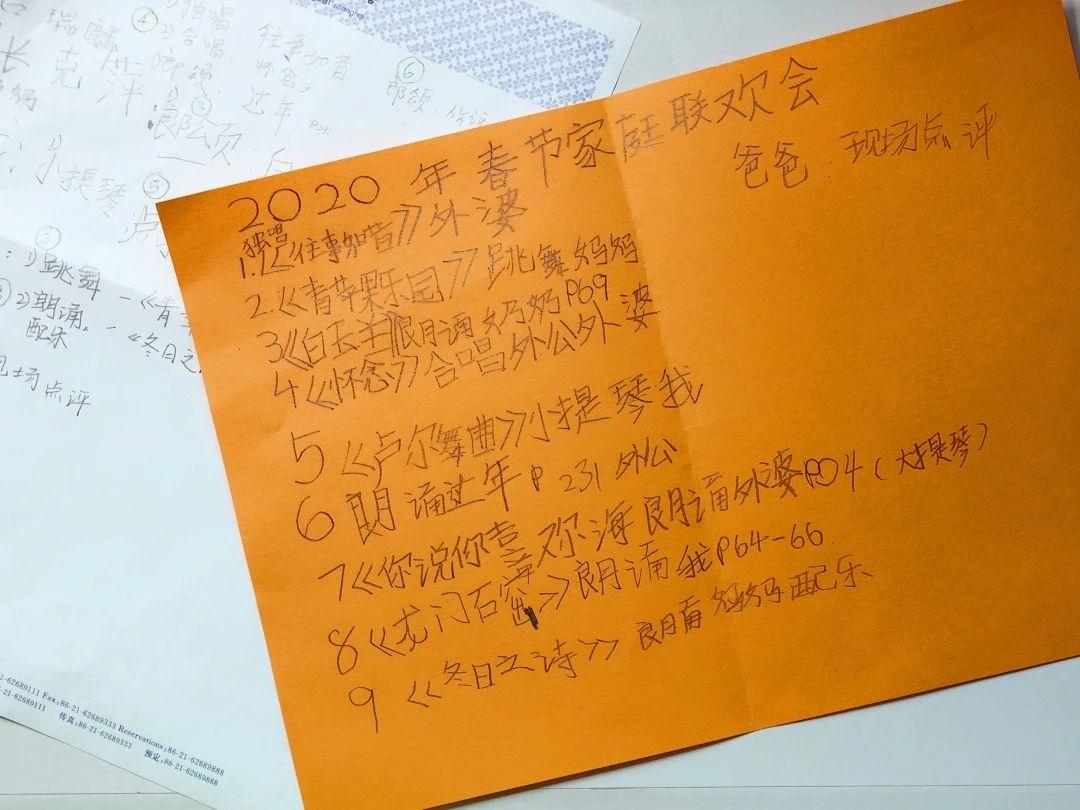 2020年春节家庭联欢会
爸爸:现场点评
独唱
1.《往事如昔》外婆
2.《青苹果乐园》跳舞妈妈
3《白玉羊》朗诵奶奶P69
4《怀念》合唱外公外婆
5《卢尔舞曲》小提琴我
6朗诵过年P231外公
7《你说你喜欢海朗诵外婆P04(大提琴)
8《龙门石窟》朗诵我P64-66
9《冬日之诗》朗诵妈妈配乐
④
独唱
2)合唱
往事如昔
怀念
过年
P231
⑥
朗诵
克萍
朗诵
小提琴
⑤
:1)跳舞-《青
2)朗诵,-《冬日之
配乐
场点评
shanghai
1-62689111 Fax:86-21-62689333 Reservations:86-21-62689888
21-62689111 传真:86-21-62689333 预定:86-21-62689888